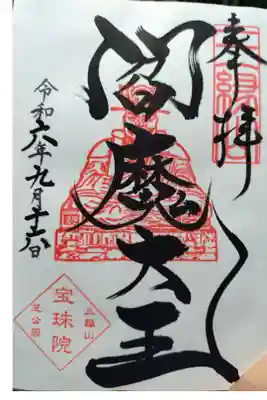 奉拝
閻魔大王
令和六年九月十六日
三縁山
宝珠院
芝公園